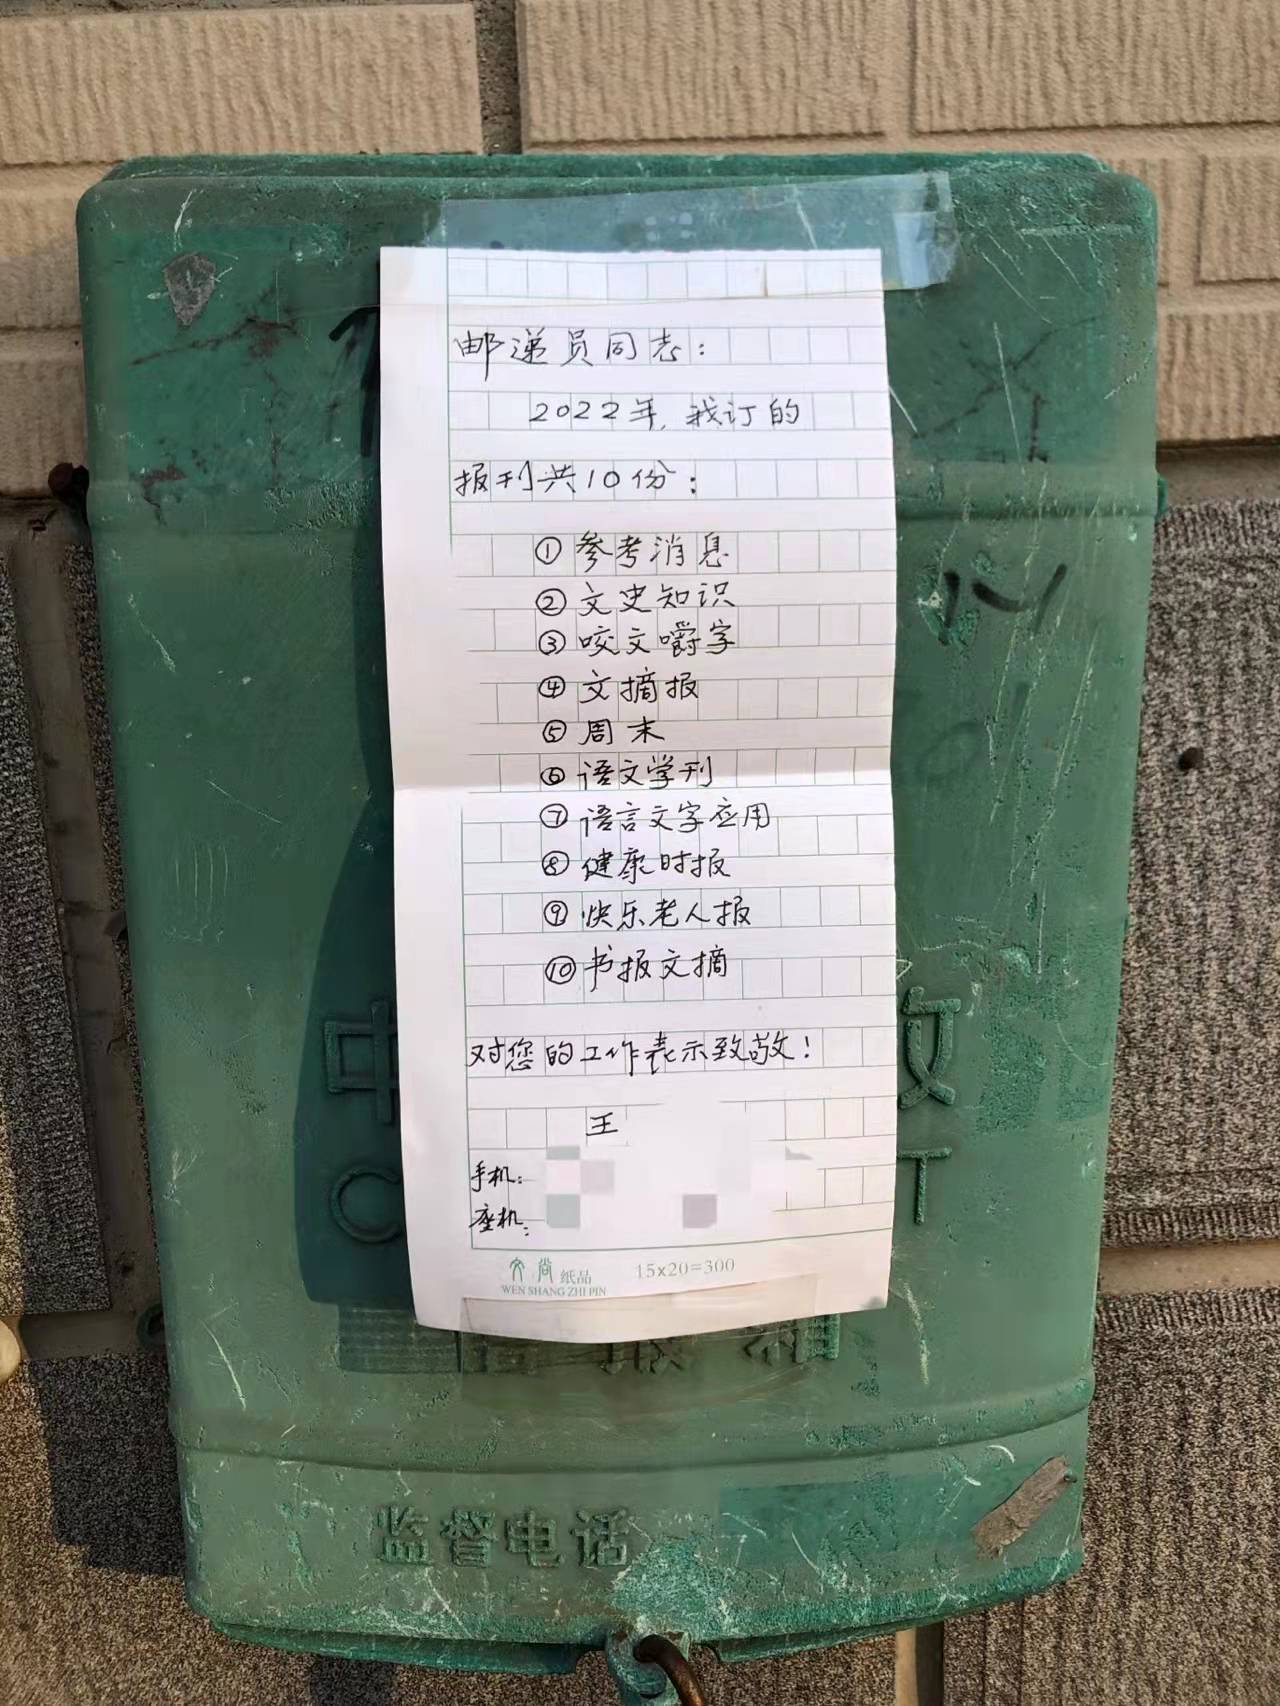 邮递员同志：
2022年，我订的
报刊共10份：
①参考消息
②文史知识
③咬文嚼字
④文摘报
⑤周末
⑥语文学刊
⑦语言文字应用
⑧健康时报
⑨快乐老人报
⑩书报文摘
对您的工作表示致敬！
王
手机：
座机：
文尚纸品 15x20=300
WEN SHANG ZHI PIN
中
C T
监督电话